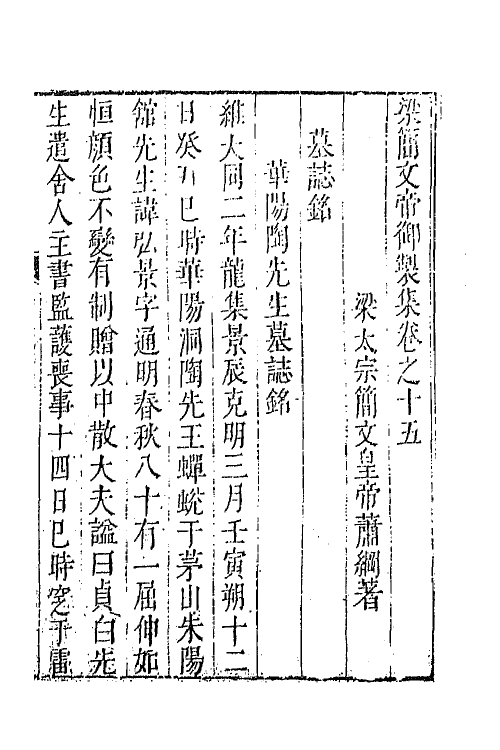 梁簡文帝御製集卷之十五
梁太宗簡文皇帝蕭綱著
墓誌銘
華陽陶先生墓誌銘
維大同二年龍集景辰克明三月壬寅朔十二
日癸丑巳時華陽洞陶先王蟬蛻于茅山朱陽
舘先生諱弘景字通明春秋八十有一屈伸如
恒顔色不變有制贈以中散大夫諡曰貞白先
生遣舍人主書監護喪事十四日巳時窆于雷